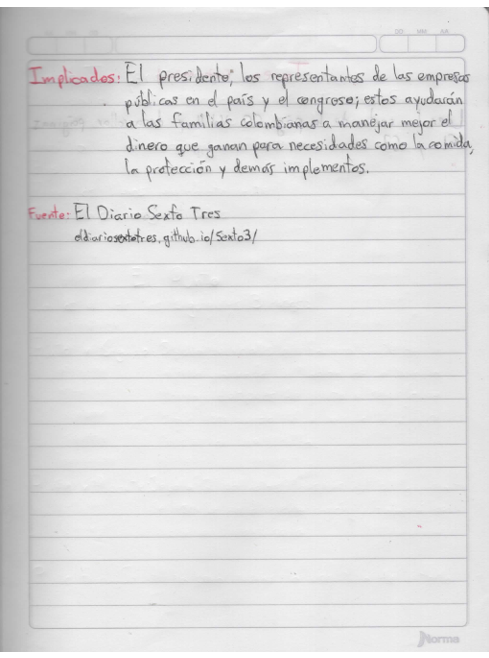 Implicados: El presidente; los representantes de las empresas
públicas en el país y el congreso; estos ayudarán
a las familias colombianas a manejar mejor el
dinero que ganan para necesidades como la comida,
la protección y demás implementos.
Fuente: El Diario Sexto Tres
eldiariosextotres.github.io/Sexto3/
Norma